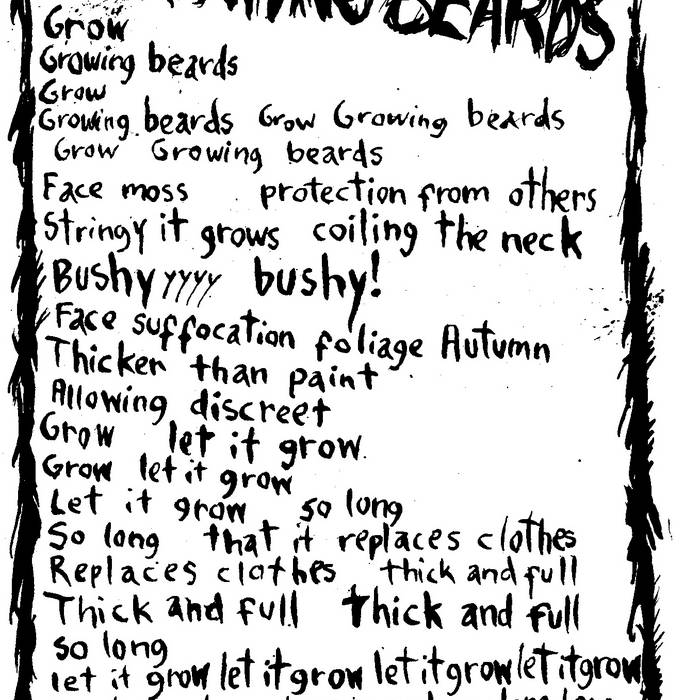 BEARDS
Grow
Growing beards
Grow
Growing beards Grow Growing beards
Grow Growing beards
Face moss protection from others
Stringy it grows coiling the neck
Bushyyyyy bushy!
Face suffocation foliage Autumn
Thicker than paint
Allowing discreet
Grow let it grow.
Grow let it grow
Let it grow so long
So long that it replaces clothes
Replaces clothes thick and full
Thick and full thick and full
so long
let it grow let it grow let it grow let it grow